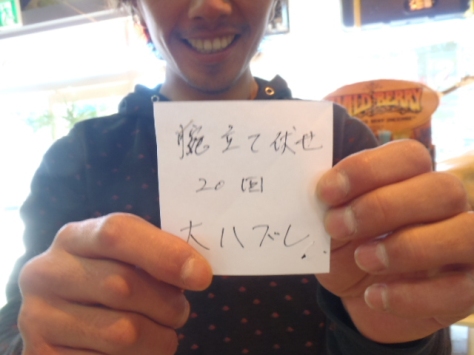 腕立て伏せ
20回
大ハズレ!!